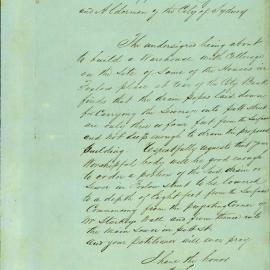 and Aldermen of the City of Sydney
The undersigned being about
to build a Warehouse with Cellerage
on the Site of Some of the Houses in
place at rear of the City Bank
finds that the drain pipes laid down
for Carrying the Sewerage into Pitt Street
are only three or four feet from the Surface
and not deep enough to drain the proposed
Building Respectfully requests that your
Worshipful body will be good enough
to order a portion of the said drain or
Sewer in Street to be lowered
to a depth of Eight feet from the Surface
Commencing from the projecting Corner of
Mr Wall and from thence into
the Main Sewer in Pitt St
And your petitioner will ever pray
I have the honor